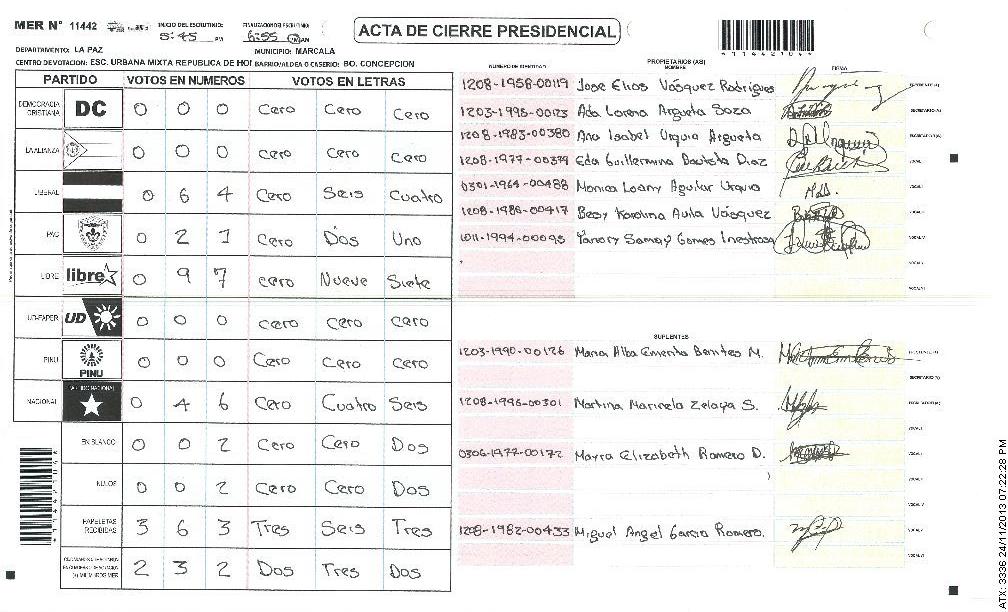 MER N° 11442
INICIO DEL ESCRUTINIO:
5:45 PM
FINALIZACION DEL ESCRUTINIO:
6:55
ACTA DE CIERRE PRESIDENCIAL
DEPARTAMENTO: LA PAZ
MUNICIPIO: MARCALA
CENTRO DE VOTACION: ESC. URBANA MIXTA REPUBLICA DE HOI BARRIO/ALDEA O CASERIO: BO. CONCEPCION
PARTIDO VOTOS EN NUMEROS VOTOS EN LETRAS
DEMOCRACIA CRISTIANA DC 0 0 0 Cero Cero Cero
LA ALIANZA 0 0 0 Cero Cero Cero
LIBERAL 0 6 4 Cero Seis Cuatro
PAC 0 2 1 Cero Dos Uno
LIBRE libre 0 9 7 Cero Nueve Siete
UD-FAPER UD 0 0 0 Cero Cero Cero
PINU PINU 0 0 0 Cero Cero Cero
NACIONAL PARTIDO NACIONAL 0 4 6 Cero Cuatro Seis
EN BLANCO 0 0 2 Cero Cero Dos
NULOS 0 0 2 Cero Cero Dos
PAPELETAS RECIBIDAS 3 6 3 Tres Seis Tres
2 3 2 Dos Tres Dos
PROPIETARIOS (AS)
NUMERO DE IDENTIDAD NOMBRE FIRMA
1208-1958-00119 Jose Elias Vásquez Rodrigues
1203-1995-00123 Ada Lorena Argueta Soza
1208-1983-00380 Ana Isabel Urquia Argueta
1208-1977-00379 Eda Guillermina Bautista Diaz
0301-1964-00488 Monica Loany Aguilar Urquia
1208-1986-00417 Bessy Karolina Avila Vásquez
1011-1994-00095 Yanory Samay Gomes Inestroza
SUPLENTES
1203-1990-00126 Maria Alba Emerita Benites M.
1208-1996-00301 Martina Marinela Zelaya S.
0306-1977-00172 Mayra Elizabeth Romero D.
1208-1982-00433 Miguel Angel Garcia Romero.
ATX: 3336 24/11/2013 07:22:28 PM